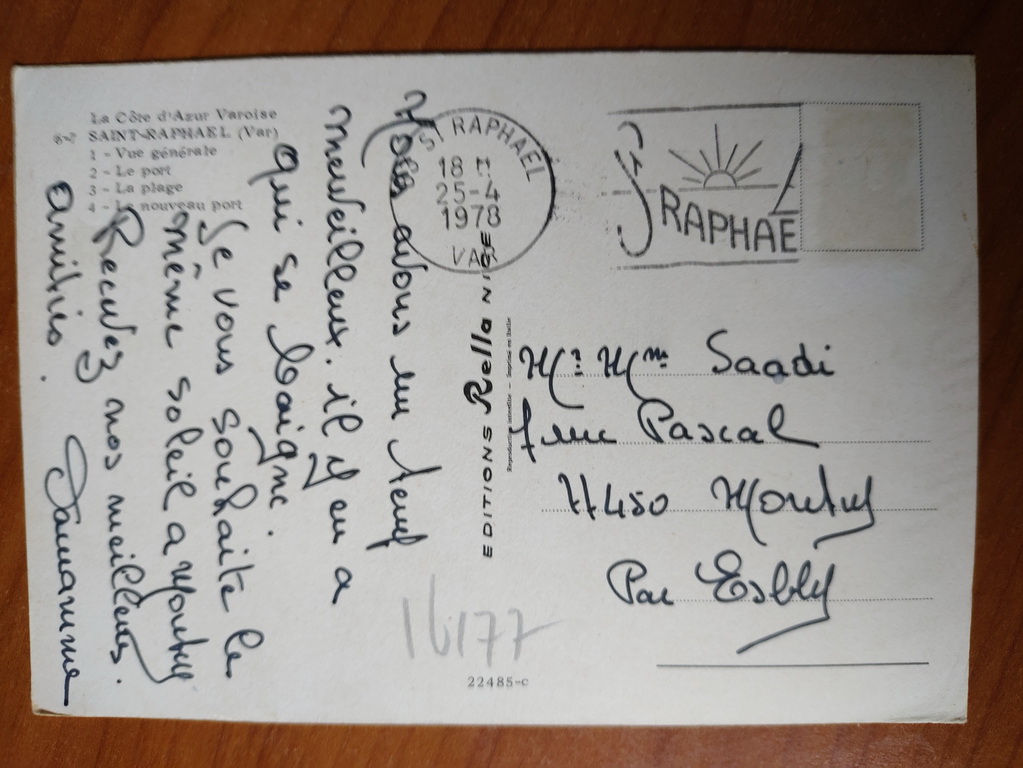 La Côte d'Azur Varoise
6-7 SAINT-RAPHAEL (Var)
1 - Vue générale
2 - Le port
3 - La plage
4 - Le nouveau port
Nous avons un temps
merveilleux. il y en a
qui se baigne.
Je vous souhaite le
même soleil a Montry
Recevez nos meilleures
amitiés.
ST RAPHAEL
18 H
25-4
1978
VAR
ST RAPHAE
EDITIONS Rella NICE
Reproduction interdite — Imprimé en Italie
Mr Mme Saadi
Pascal
77450 Montry
Par Esbly
16177
22485-c